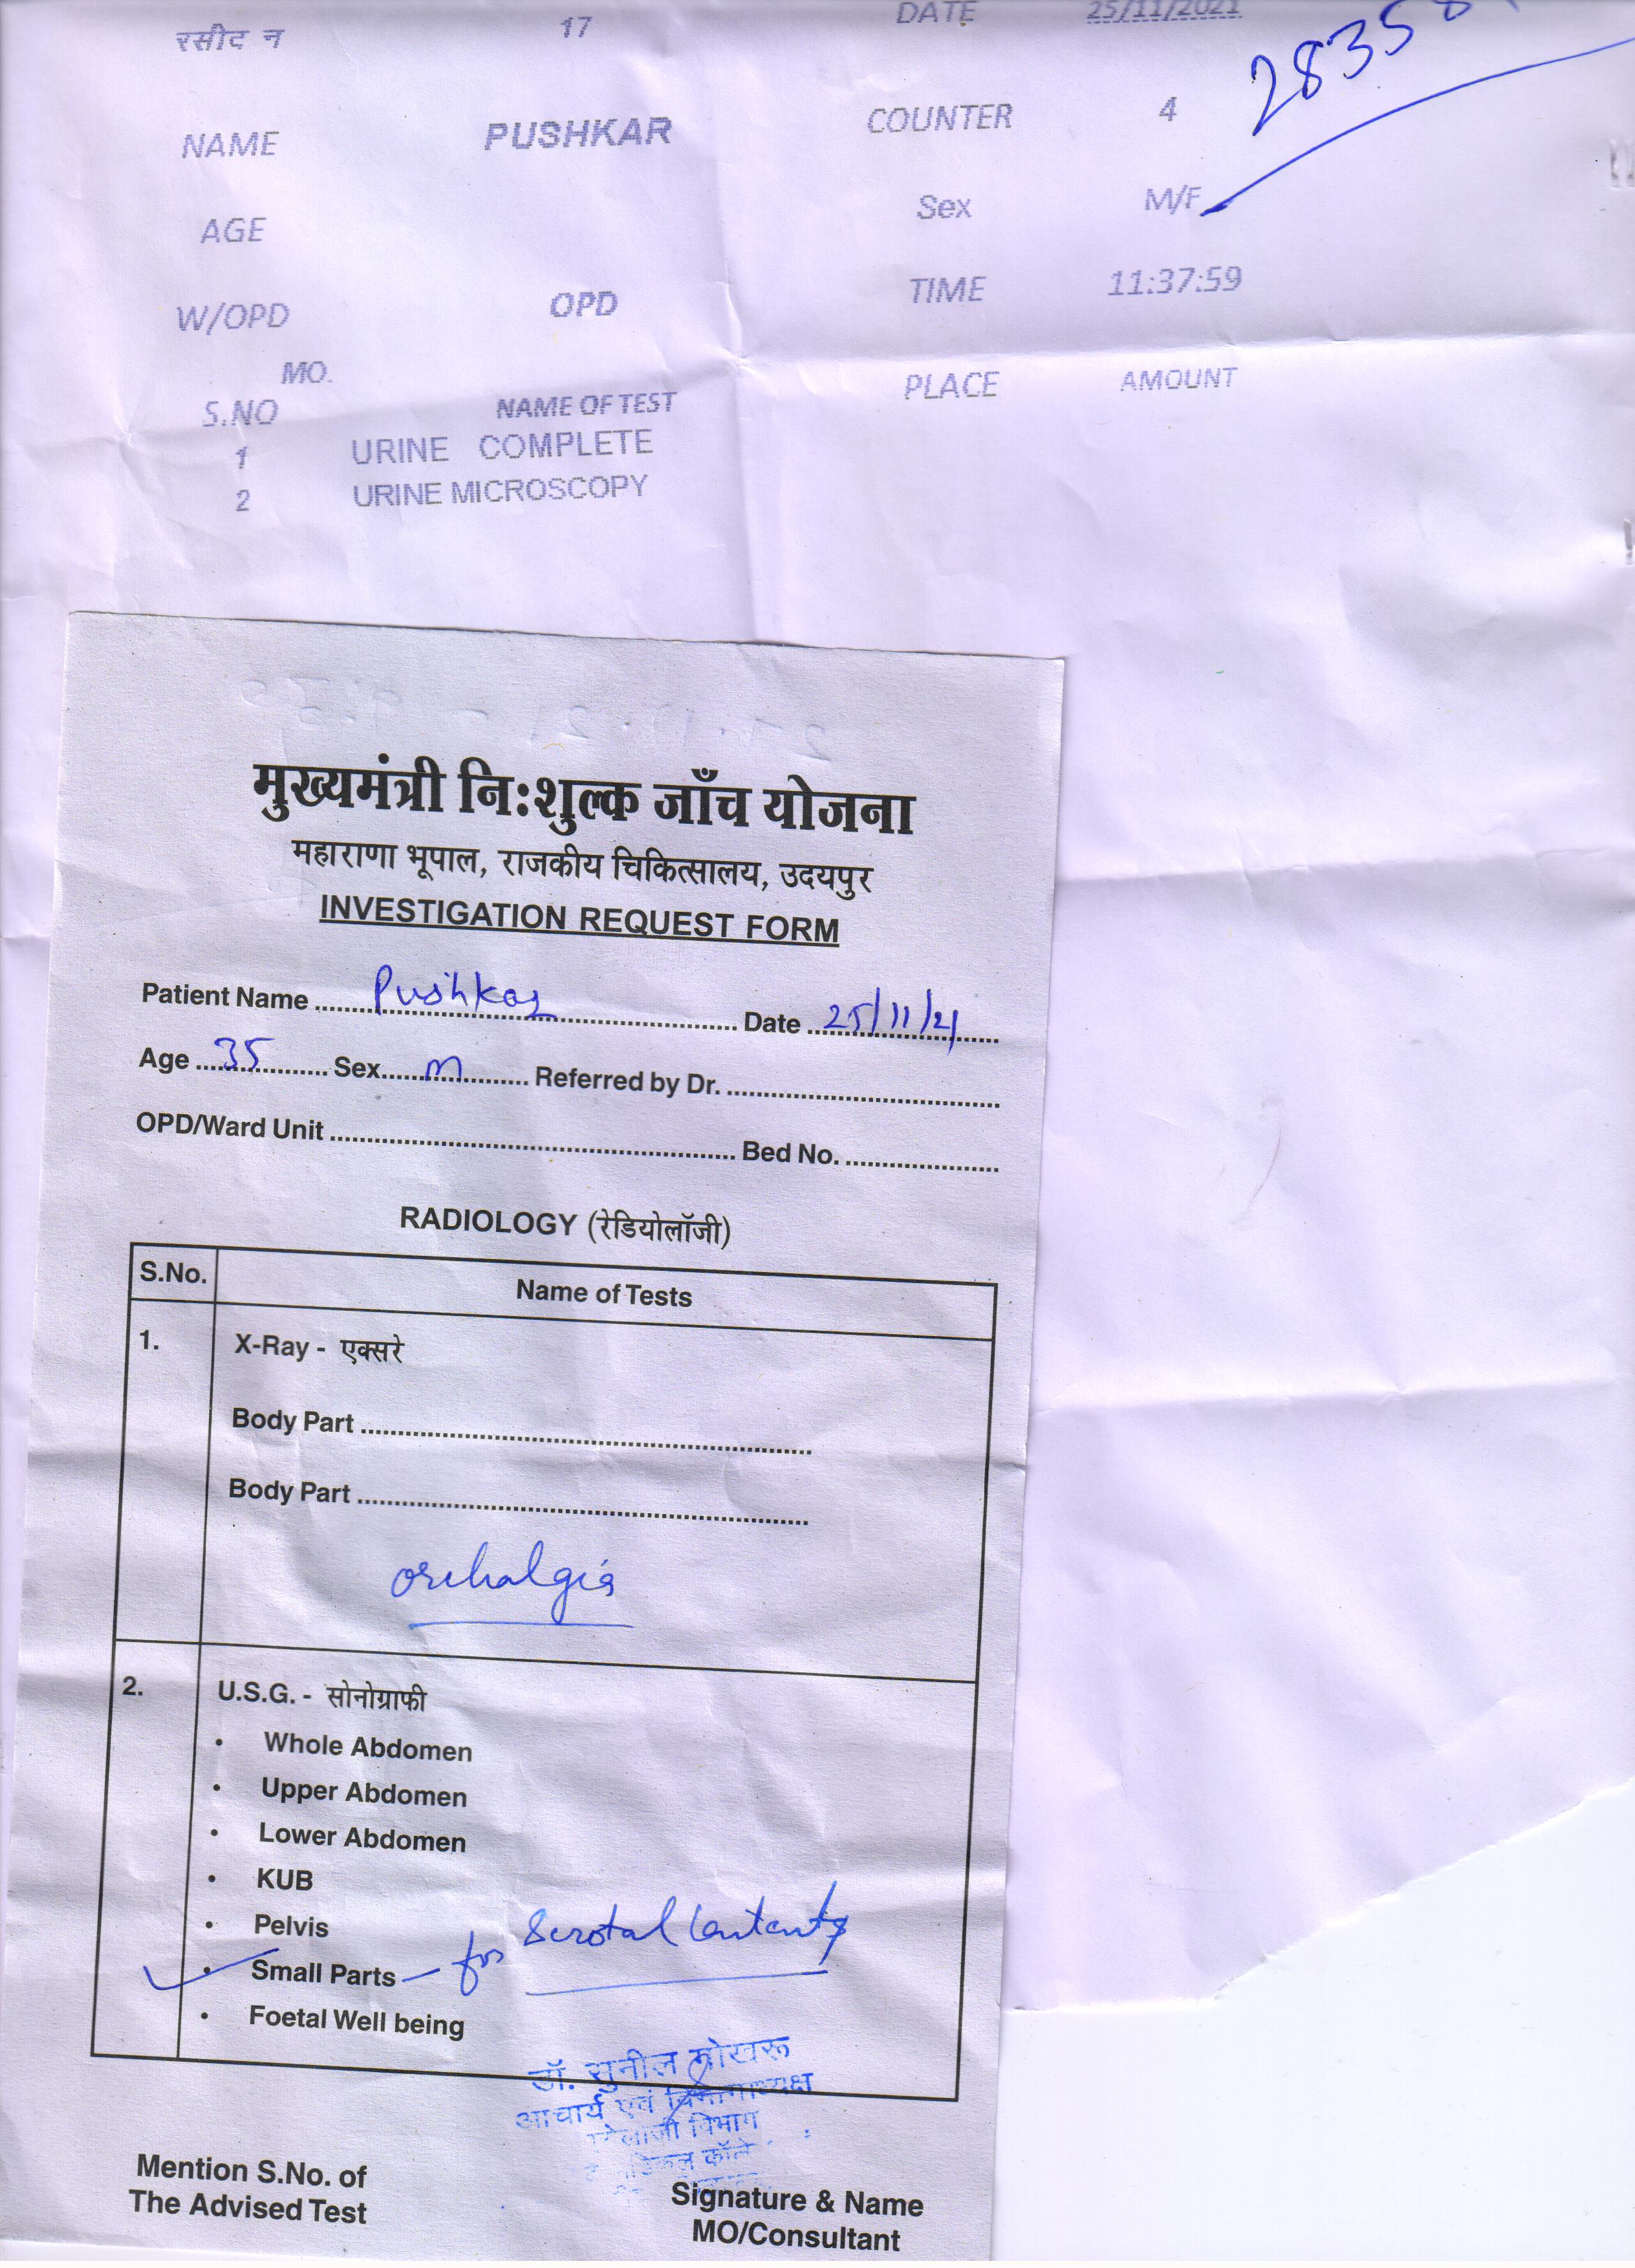 रसीद न 17 DATE 25/11/2021
NAME PUSHKAR COUNTER 4
AGE Sex M/F
W/OPD OPD TIME 11:37:59
MO.
S.NO NAME OF TEST PLACE AMOUNT
1 URINE COMPLETE
2 URINE MICROSCOPY
मुख्यमंत्री नि:शुल्क जाँच योजना
महाराणा भूपाल, राजकीय चिकित्सालय, उदयपुर
INVESTIGATION REQUEST FORM
Patient Name Pushkar Date 25/11/21
Age 35 Sex M Referred by Dr.
OPD/Ward Unit Bed No.
RADIOLOGY (रेडियोलॉजी)
S.No. Name of Tests
1. X-Ray - एक्सरे
Body Part
Body Part
orchalgia
2. U.S.G. - सोनोग्राफी
• Whole Abdomen
• Upper Abdomen
• Lower Abdomen
• KUB
• Pelvis
• Small Parts — for Scrotal Contents
• Foetal Well being
डॉ. सुनील गोखरू
आचार्य एवं विभागाध्यक्ष
विभाग
Mention S.No. of
The Advised Test
Signature & Name
MO/Consultant